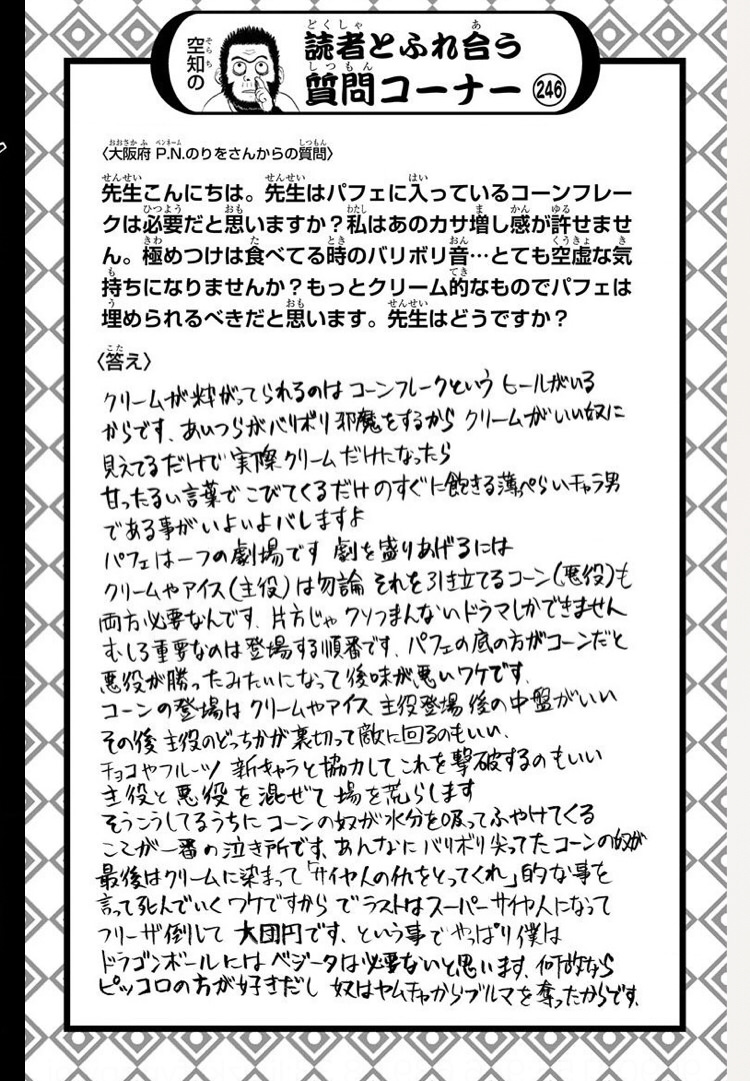 空知の
読者とふれ合う
質問コーナー 246
〈大阪府 P.N.のりをさんからの質問〉
先生こんにちは。先生はパフェに入っているコーンフレー
クは必要だと思いますか?私はあのカサ増し感が許せませ
ん。極めつけは食べてる時のバリボリ音…とても空虚な気
持ちになりませんか?もっとクリーム的なものでパフェは
埋められるべきだと思います。先生はどうですか?
〈答え〉
クリームが粋がってられるのはコーンフレークというヒールがいる
からです、あいつらがバリボリ邪魔をするからクリームがいい奴に
見えてるだけで実際クリームだけになったら
甘ったるい言葉でこびてくるだけのすぐに飽きる薄っぺらいチャラ男
である事がいよいよバレしますよ
パフェは一つの劇場です 劇を盛りあげるには
クリームやアイス(主役)は勿論 それを引き立てるコーン(悪役)も
両方必要なんです、片方じゃクソつまんないドラマしかできません
むしろ重要なのは登場する順番です、パフェの底の方がコーンだと
悪役が勝ったみたいになって後味が悪いワケです、
コーンの登場はクリームやアイス 主役登場後の中盤がいい
その後主役のどっちかが裏切って敵に回るのもいい、
チョコやフルーツ 新キャラと協力してこれを撃破するのもいい
主役と悪役を混ぜて場を荒らします
そうこうしてるうちにコーンの奴が水分を吸ってふやけてくる
ここが一番の泣き所です、あんなにバリボリ尖ってたコーンの奴が
最後はクリームに染まって「サイヤ人の仇をとってくれ」的な事を
言って死んでいくワケですから でラストはスーパーサイヤ人になって
フリーザ倒して 大団円です、という事でやっぱり僕は
ドラゴンボールにはベジータは必要ないと思います、何故なら
ピッコロの方が好きだし 奴はヤムチャからブルマを奪ったからです、